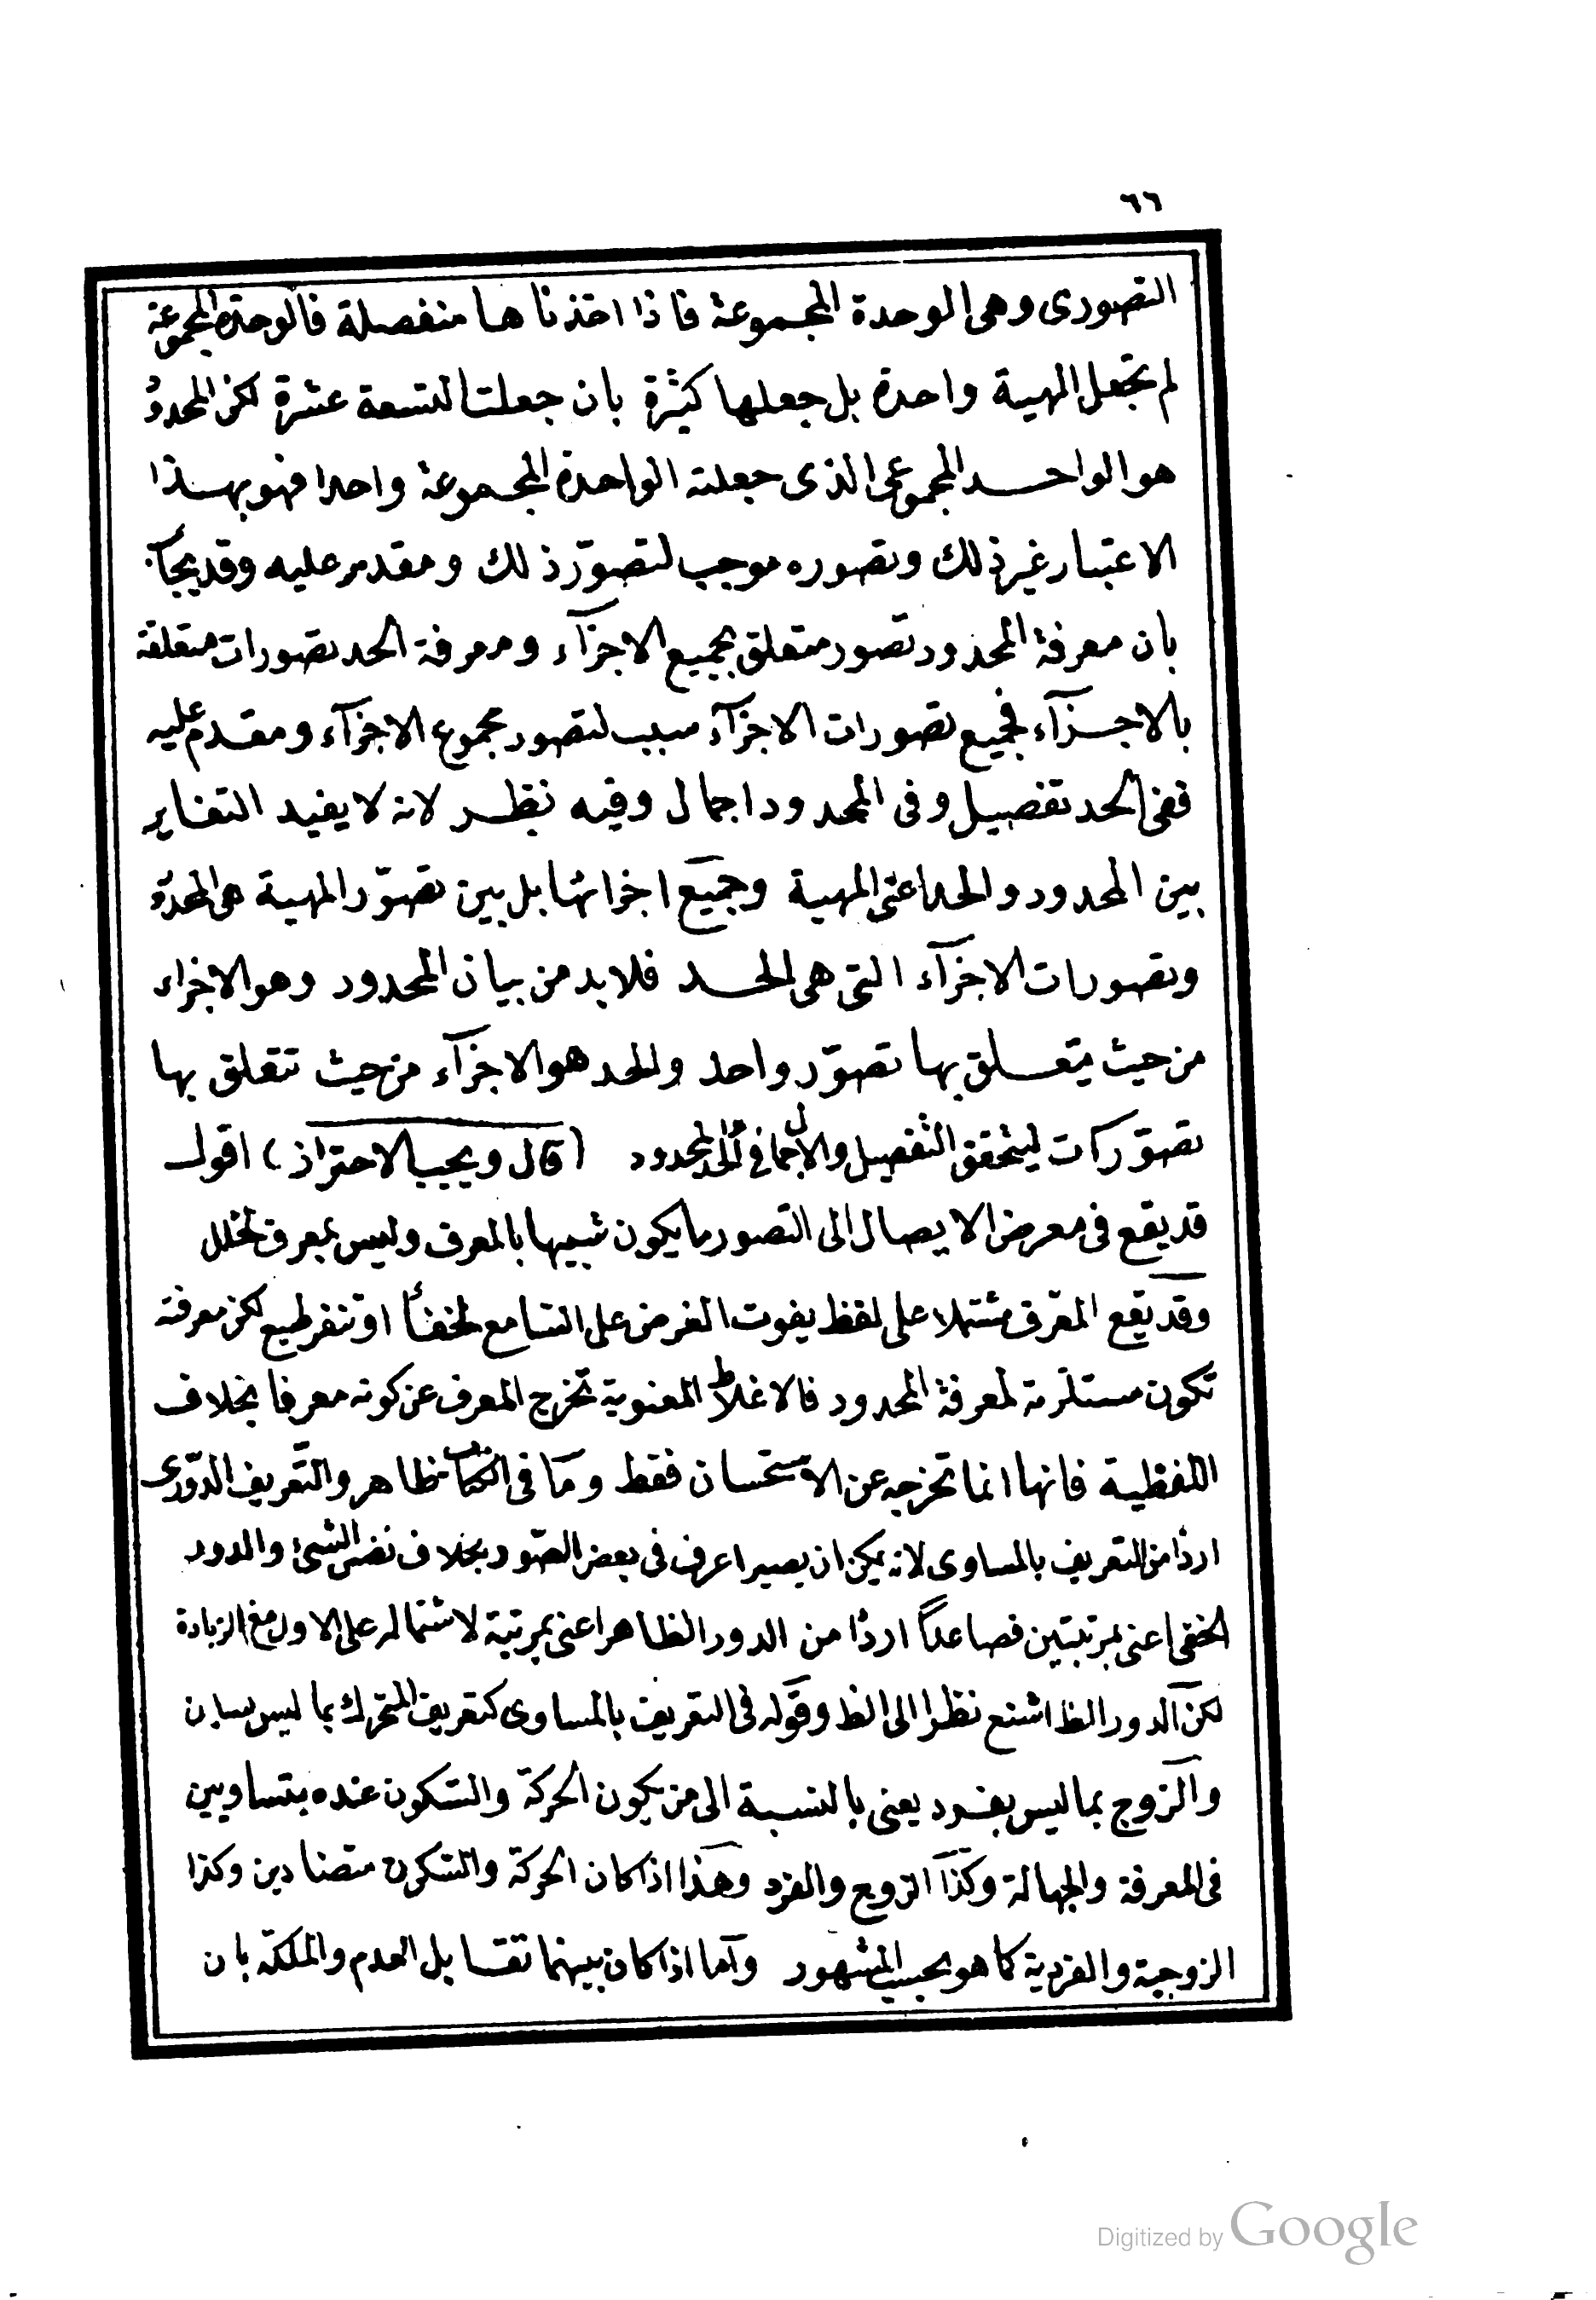 ٦٦
التصورى وهى الوحدة المجموعة فاذا اخذناها منفصلة فالوحدة المجموعة
لم تجعل المهية واحدة بل جعلها كثيرة بان جعلت التسعة عشرة لكن المحدود
هو الواحد المجموعى الذى جعلته الواحدة المجموعة واحدا فهو بهذا
الاعتبار غير ذلك وتصوره موجب لتصوّر ذلك ومقدم عليه وقد يجاب
بان معرفة المحدود تصور متعلق بجميع الاجزآء ومعرفة الحد تصورات متعلقة
بالاجزآء فجميع تصورات الاجزآء سبب لتصور مجموع الاجزآء ومقدم عليه
ففى الحد تفصيل وفى المحدود اجمال وفيه نظر لانه لا يفيد التغاير
بين المحدود والحد اعنى المهية وجميع اجزائها بل بين تصوّر المهية هى المحدود
وتصورات الاجزآء التى هى الحد فلابد من بيان المحدود وهو الاجزاء
من حيث يتعلق بها تصوّر واحد والحد هو الاجزآء من حيث تتعلق بها
تصوّرات ليتحقق التفصيل والاجمال فى الحد والمحدود (قال ويجب الاحتراز) اقول
قد يقع فى معرض الايصال الى التصور ما يكون شبيها بالمعرف وليس بمعرف لخلل
وقد يقع المعرّف مشتملا على لفظ يفوت الغرض على السامع لخفأ او تنفر طبع لكن معرفته
تكون مستلزمة لمعرفة المحدود فالاغلاط المعنوية تخرج المعرف عن كونه معرفا بخلاف
اللفظية فانها انما تخرجه عن الاستحسان فقط وما فى الكتاب ظاهر والتّعريف الدّورى
اردأ من التعريف بالمساوى لانه يمكن ان يصير اعرف فى بعض الصّور بخلاف نفس الشئ والدور
الخفى اعنى بمرتبتين فصاعداً اردأ من الدور الظاهر اعنى بمرتبة لاشتماله على الاول مع الزيادة
لكن الدور الظ اشنع نظرا الى الظ وقوله فى التعريف بالمساوى كتعريف المتحرك بما ليس بساكن
والزوج بما ليس بفرد يعنى بالنسبة الى من يكون الحركة والسّكون عنده بتساويين
فى المعرفة والجهالة وكذا الزوج والفرد وهذا اذا كان الحركة والسّكون متضادين وكذا
الزوجية والفردية كما هو بحسب المشهور وآما اذا كان بينهما تقابل العدم والملكة بان
Digitized by Google